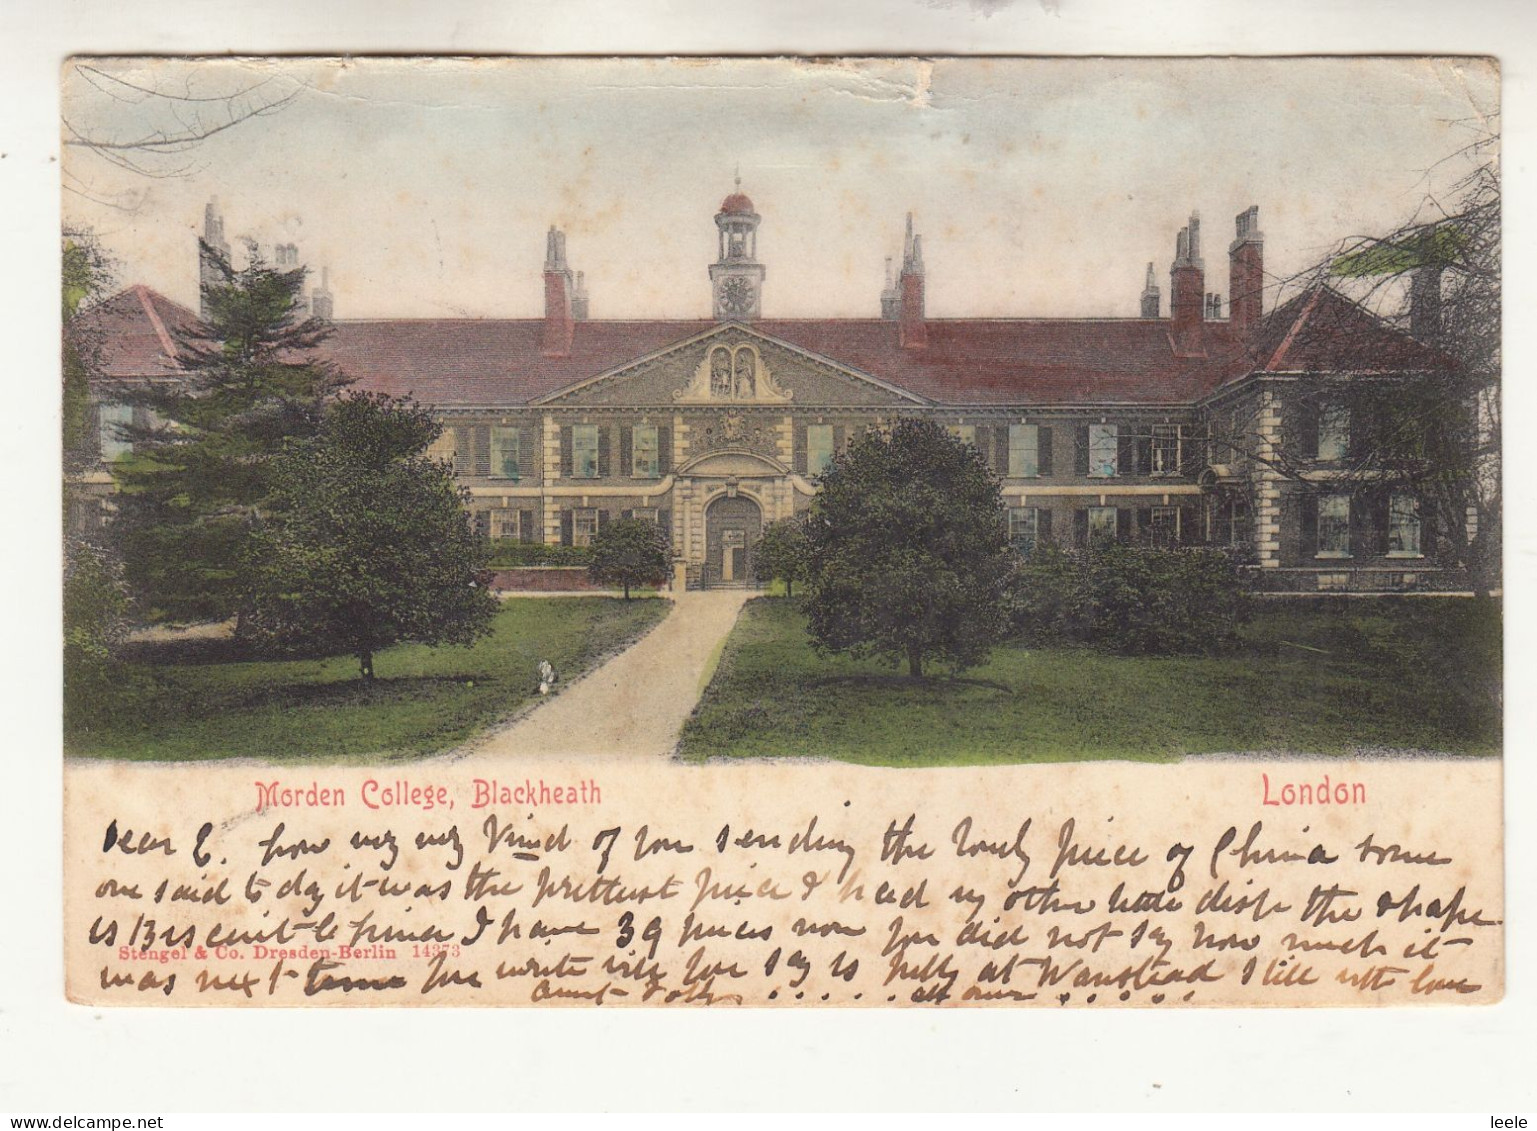 Morden College, Blackheath
London
Dear E. how very very kind of you sending the lovely piece of China some
one said to day it was the prettiest piece I had my other little dish the shape
is I have 39 pieces now you did not say how much it
Stengel & Co. Dresden-Berlin 14373
was next time you write will you say is still at Wanstead Still with love
Aunt all over
delcampe.net
leele